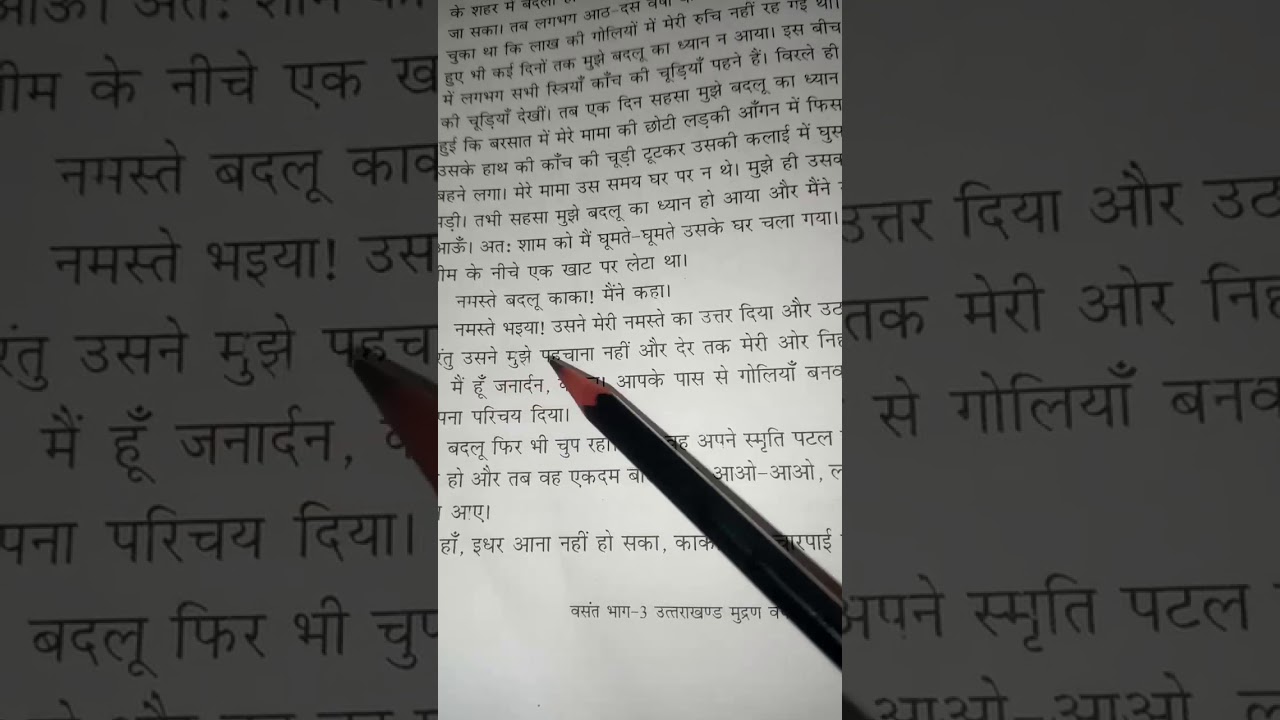 के शहर में बदली
जा सका। तब लगभग आठ-दस
चुका था कि लाख की गोलियों में मेरी रुचि नहीं रह गई थी।
हुए भी कई दिनों तक मुझे बदलू का ध्यान न आया। इस बीच
में लगभग सभी स्त्रियाँ काँच की चूड़ियाँ पहने हैं। विरले ही
की चूड़ियाँ देखीं। तब एक दिन सहसा मुझे बदलू का ध्यान
हुई कि बरसात में मेरे मामा की छोटी लड़की आँगन में फिस
उसके हाथ की काँच की चूड़ी टूटकर उसकी कलाई में घुस
बहने लगा। मेरे मामा उस समय घर पर न थे। मुझे ही उसक
पड़ी। तभी सहसा मुझे बदलू का ध्यान हो आया और मैंने
आऊँ। अतः शाम को मैं घूमते-घूमते उसके घर चला गया।
नीम के नीचे एक खाट पर लेटा था।
नमस्ते बदलू काका! मैंने कहा।
नमस्ते भइया! उसने मेरी नमस्ते का उत्तर दिया और उठ
रंतु उसने मुझे पहचाना नहीं और देर तक मेरी ओर निह
मैं हूँ जनार्दन, आपके पास से गोलियाँ बनव
पना परिचय दिया।
बदलू फिर भी चुप रहा। वह अपने स्मृति पटल
हो और तब वह एकदम आओ-आओ, ल
आए।
हाँ, इधर आना नहीं हो सका, काका चारपाई
वसंत भाग-3 उत्तराखण्ड मुद्रण